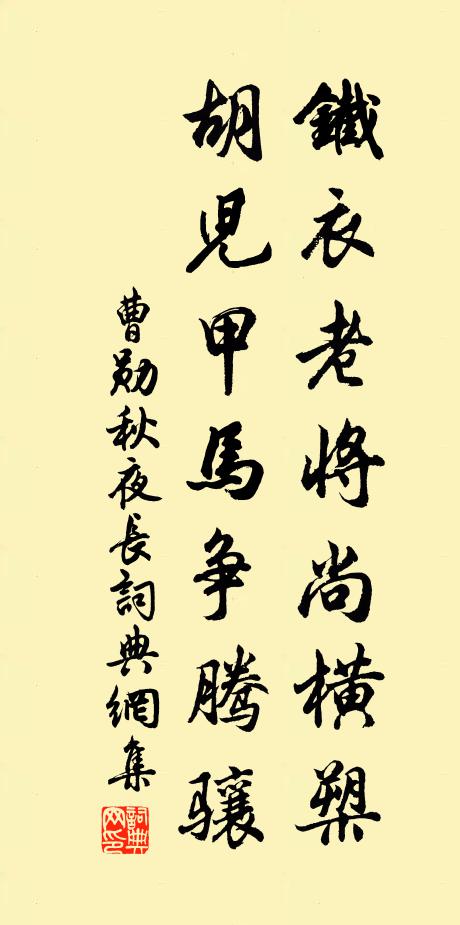 鐵衣老將尚橫槊
胡児甲馬争騰驤
曹勛秋夜長詞典網集
詞典網印